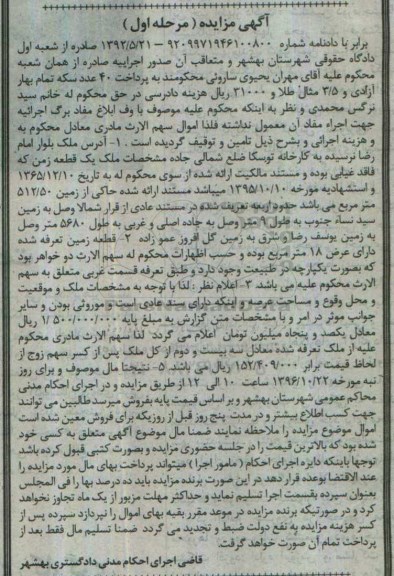 آگهی مزایده ( مرحله اول )
برابر با دادنامه شماره ۹۲۰۹۹۷۱۹۴۶۱۰۰۸۰۰ – ۱۳۹۲/۵/۲۱ صادره از شعبه اول
دادگاه حقوقی شهرستان بهشهر و متعاقب آن صدور اجراییه صادره از همان شعبه
محکوم علیه آقای مهران یحیوی ساروئی محکومند به پرداخت ۴۰ عدد سکه تمام بهار
آزادی و ۳/۵ مثقال طلا و ۳۱۰۰۰ ریال هزینه دادرسی در حق محکوم له خانم سید
نرگس محمدی و نظر به اینکه محکوم علیه موصوف با وف ابلاغ مفاد برگ اجرائیه
جهت اجراء مفاد آن معمول نداشته فلذا اموال سهم الارث مادری معادل محکوم به
و هزینه اجرائی و بشرح ذیل تامین و توقیف گردیده است . ۱- آدرس ملک بلوار امام
رضا نرسیده به کارخانه توسکا ضلع شمالی جاده مشخصات ملک یک قطعه زمین که
فاقد غیابی بوده و مستند مالکیت ارائه شده از سوی محکوم له به تاریخ ۱۳۶۵/۱۲/۱۰
و استشهادیه مورخه ۱۳۹۵/۱۰/۱۰ میباشد مستند ارائه شده حاکی از زمین ۵۱۲/۵۰
متر مربع می باشد حدود اربعه تعریف شده در مستند عادی از قرار شمالا وصل به زمین
سید نساء جنوب به طول ۹ متر وصل به جاده اصلی و غربی به طول ۵۶۸۰ متر وصل
به زمین یوسف رضا و شرق به زمین گل افروز عمو زاده ۲- قطعه زمین تعرفه شده
دارای عرض ۱۸ متر مربع بوده و حسب اظهارات محکوم له سهم الارث دو خواهر بود
که بصورت یکپارچه در طبیعت وجود دارد و طبق تعرفه قسمت غربی متعلق به سهم
الارث محکوم علیه می باشد ۳- اعلام نظر : لذا با توجه به مشخصات ملک و موقعیت
و محل وقوع و مساحت عرصه و اینکه دارای سند عادی است و موروثی بودن و سایر
جوانب موثر در امر و با مشخصات متن گزارش به مبلغ پایه ۱/۵۰۰/۰۰۰/۰۰۰ ریال
معادل یکصد و پنجاه میلیون تومان اعلام می گردد لذا سهم الارث مادری محکوم
علیه از ملک تعرفه شده معادل سه بیست و دوم از کل ملک پس از کسر سهم زوج از
لحاظ قیمت برابر ۱۵۲/۴۰۹/۰۰۰ ریال می باشد. ۵- نتیجتا مال موصوف و برای روز
نبه مورخه ۱۳۹۶/۱۰/۲۲ ساعت ۱۰ الی ۱۲ از طریق مزایده و در اجرای احکام مدنی
محاکم عمومی شهرستان بهشهر و بر اساس قیمت پایه بفروش میرسد طالبین می توانند
جهت کسب اطلاع بیشتر و در مدت پنج روز قبل از روزیکه برای فروش معین شده است
اموال موضوع مزایده را ملاحظه نمایند ضمنا مال موضوع آگهی متعلق به کسی خود
شده بود که بالاترین قیمت را در جلسه حضوری مزایده و بصورت کتبی قبول کرده باشد
توجها باینکه دایره اجرای احکام ( مامور اجرا ) میتواند پرداخت بهای مال مورد مزایده را
عند الاقتضا بوعده قرار دهد در این صورت برنده مزایده باید ده درصد بها را فی المجلس
بعنوان سپرده بقسمت اجرا تسلیم نماید و حداکثر مهلت مزبور از یک ماه تجاوز نخواهد
کرد و در صورتیکه برنده مزایده در موعد مقرر بقیه بهای اموال را نپردازد سپرده پس از
کسر هزینه مزایده به نفع دولت ضبط و تجدید می گردد ضمنا تسلیم مال فقط بعد از
پرداخت تمام آن صورت خواهد گرفت.
قاضی اجرای احکام مدنی دادگستری بهشهر